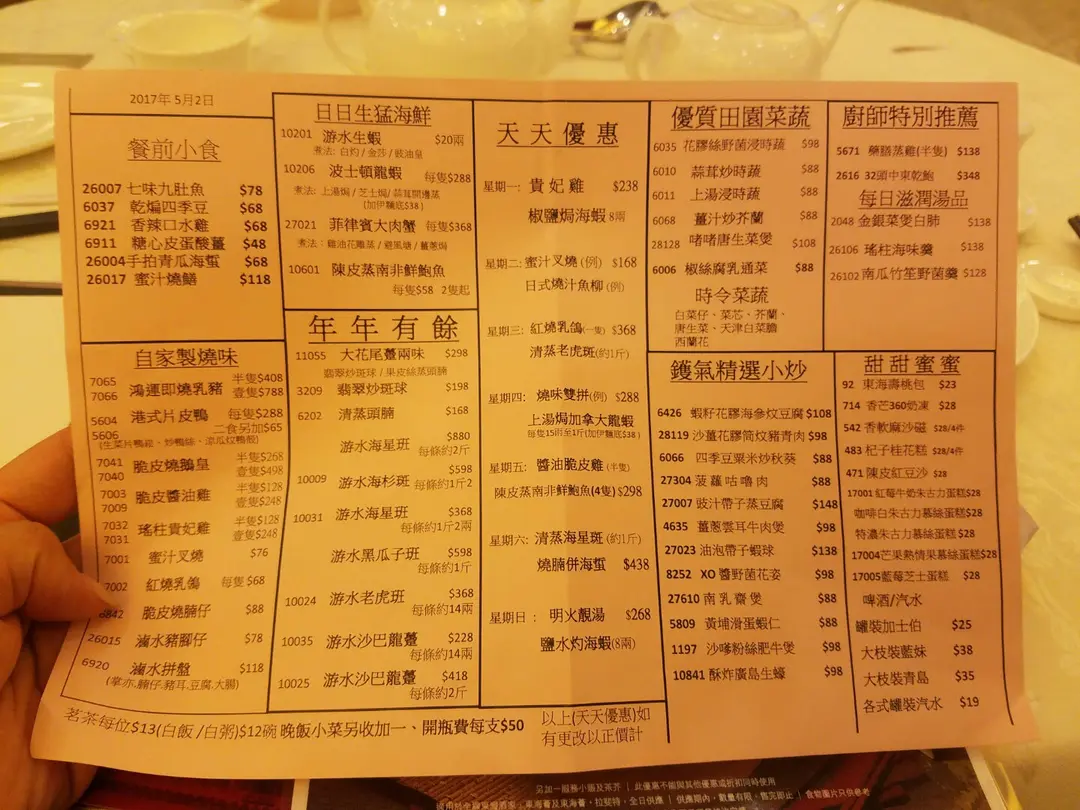 2017年 5月2日
餐前小食
26007 七味九肚魚 $78
6037 乾煸四季豆 $68
6921 香辣口水雞 $68
6911 糖心皮蛋酸薑 $48
26004 手拍青瓜海蜇 $68
26017 蜜汁燒鱔 $118
自家製燒味
7065 鴻運即燒乳豬 半隻$408
7066 壹隻$788
5604 港式片皮鴨 每隻$288
5606 二食另加$65
7041 脆皮燒鵝皇 半隻$268
7040 壹隻$498
7003 脆皮醬油雞 半隻$128
7009 壹隻$248
7032 瑤柱貴妃雞 半隻$128
7031 壹隻$248
7001 蜜汁叉燒 $76
7002 紅燒乳鴿 每隻$68
6842 脆皮燒腩仔 $88
26015 滷水豬腳仔 $78
6920 滷水拼盤 $118
(掌亦.腩仔.豬耳.豆腐.大腸)
日日生猛海鮮
10201 游水生蝦 $20兩
煮法: 白灼 / 金莎 / 豉油皇
10206 波士頓龍蝦 每隻$288
煮法: 上湯焗 / 芝士焗 / 蒜茸開邊蒸
(加伊麵底$38 )
27021 菲律賓大肉蟹 每隻$368
煮法 : 雞油花雕蒸 / 避風塘 / 薑蔥焗
10601 陳皮蒸南非鮮鮑魚
每隻$58 2隻起
年年有餘
11055 大花尾躉兩味 $298
翡翠炒斑球 / 果皮絲蒸頭腩
3209 翡翠炒斑球 $198
6202 清蒸頭腩 $168
游水海星班 $880
每條約2斤
$598
10009 游水海杉斑 每條約1斤2
10031 游水海星班 $368
每條約1斤2兩
游水黑瓜子班 $598
每條約1斤
10024 游水老虎班 $368
每條約14兩
10035 游水沙巴龍躉 $228
每條約14兩
10025 游水沙巴龍躉 $418
每條約2斤
天天優惠
星期一: 貴妃雞 $238
椒鹽焗海蝦 8兩
星期二: 蜜汁叉燒 (例) $168
日式燒汁魚柳 (例)
星期三: 紅燒乳鴿(一隻) $368
清蒸老虎斑(約1斤)
星期四: 燒味雙拼(例) $288
上湯焗加拿大龍蝦
每隻15兩至1斤(加伊麵底$38 )
星期五: 醬油脆皮雞 (半隻)
陳皮蒸南非鮮鮑魚(4隻) $298
星期六: 清蒸海星斑(約1斤)
燒腩併海蜇 $438
星期日: 明火靚湯 $268
鹽水灼海蝦(8兩)
優質田園菜蔬
6035 花膠絲野菌浸時蔬 $98
6010 蒜茸炒時蔬 $88
6011 上湯浸時蔬 $88
6068 薑汁炒芥蘭 $88
28128 啫啫唐生菜煲 $108
6006 椒絲腐乳通菜 $88
時令菜蔬
白菜仔、菜芯、芥蘭、
唐生菜、天津白菜膽
西蘭花
鑊氣精選小炒
6426 蝦籽花膠海參炆豆腐 $108
28119 沙薑花膠筒炆豬青肉 $98
6066 四季豆粟米炒秋葵 $88
27304 菠蘿咕嚕肉 $88
27007 豉汁帶子蒸豆腐 $148
4635 薑蔥雲耳牛肉煲 $98
27023 油泡帶子蝦球 $138
8252 XO 醬野菌花姿 $98
27610 南乳齋煲 $88
5809 黃埔滑蛋蝦仁 $88
1197 沙嗲粉絲肥牛煲 $98
10841 酥炸廣島生蠔 $98
廚師特別推薦
5671 藥膳蒸雞(半隻) $138
2616 32頭中東乾鮑 $348
每日滋潤湯品
2048 金銀菜煲白肺 $138
26106 瑤柱海味羹 $138
26102 南瓜竹笙野菌羹 $128
甜甜蜜蜜
92 東海壽桃包 $23
714 香芒360奶凍 $28
542 香軟麻沙磁 $28/4件
483 杞子桂花糕 $28/4件
471 陳皮紅豆沙 $28
17001 紅莓牛奶朱古力蛋糕$28
咖啡白朱古力慕絲蛋糕$28
特濃朱古力慕絲蛋糕$28
17004 芒果熱情果慕絲蛋糕$28
17005 藍莓芝士蛋糕 $28
啤酒/汽水
罐裝加士伯 $25
大枝裝藍妹 $38
大枝裝青島 $35
各式罐裝汽水 $19
茗茶每位$13(白飯 /白粥)$12碗 晚飯小菜另收加一、開瓶費每支$50
以上(天天優惠)如
有更改以正價計
另加一服務小臨及茶芥 | 此優惠不能與其他優惠或折扣同時使用
供應期內,數量有限,售完即止 | 食物圖片只供參考